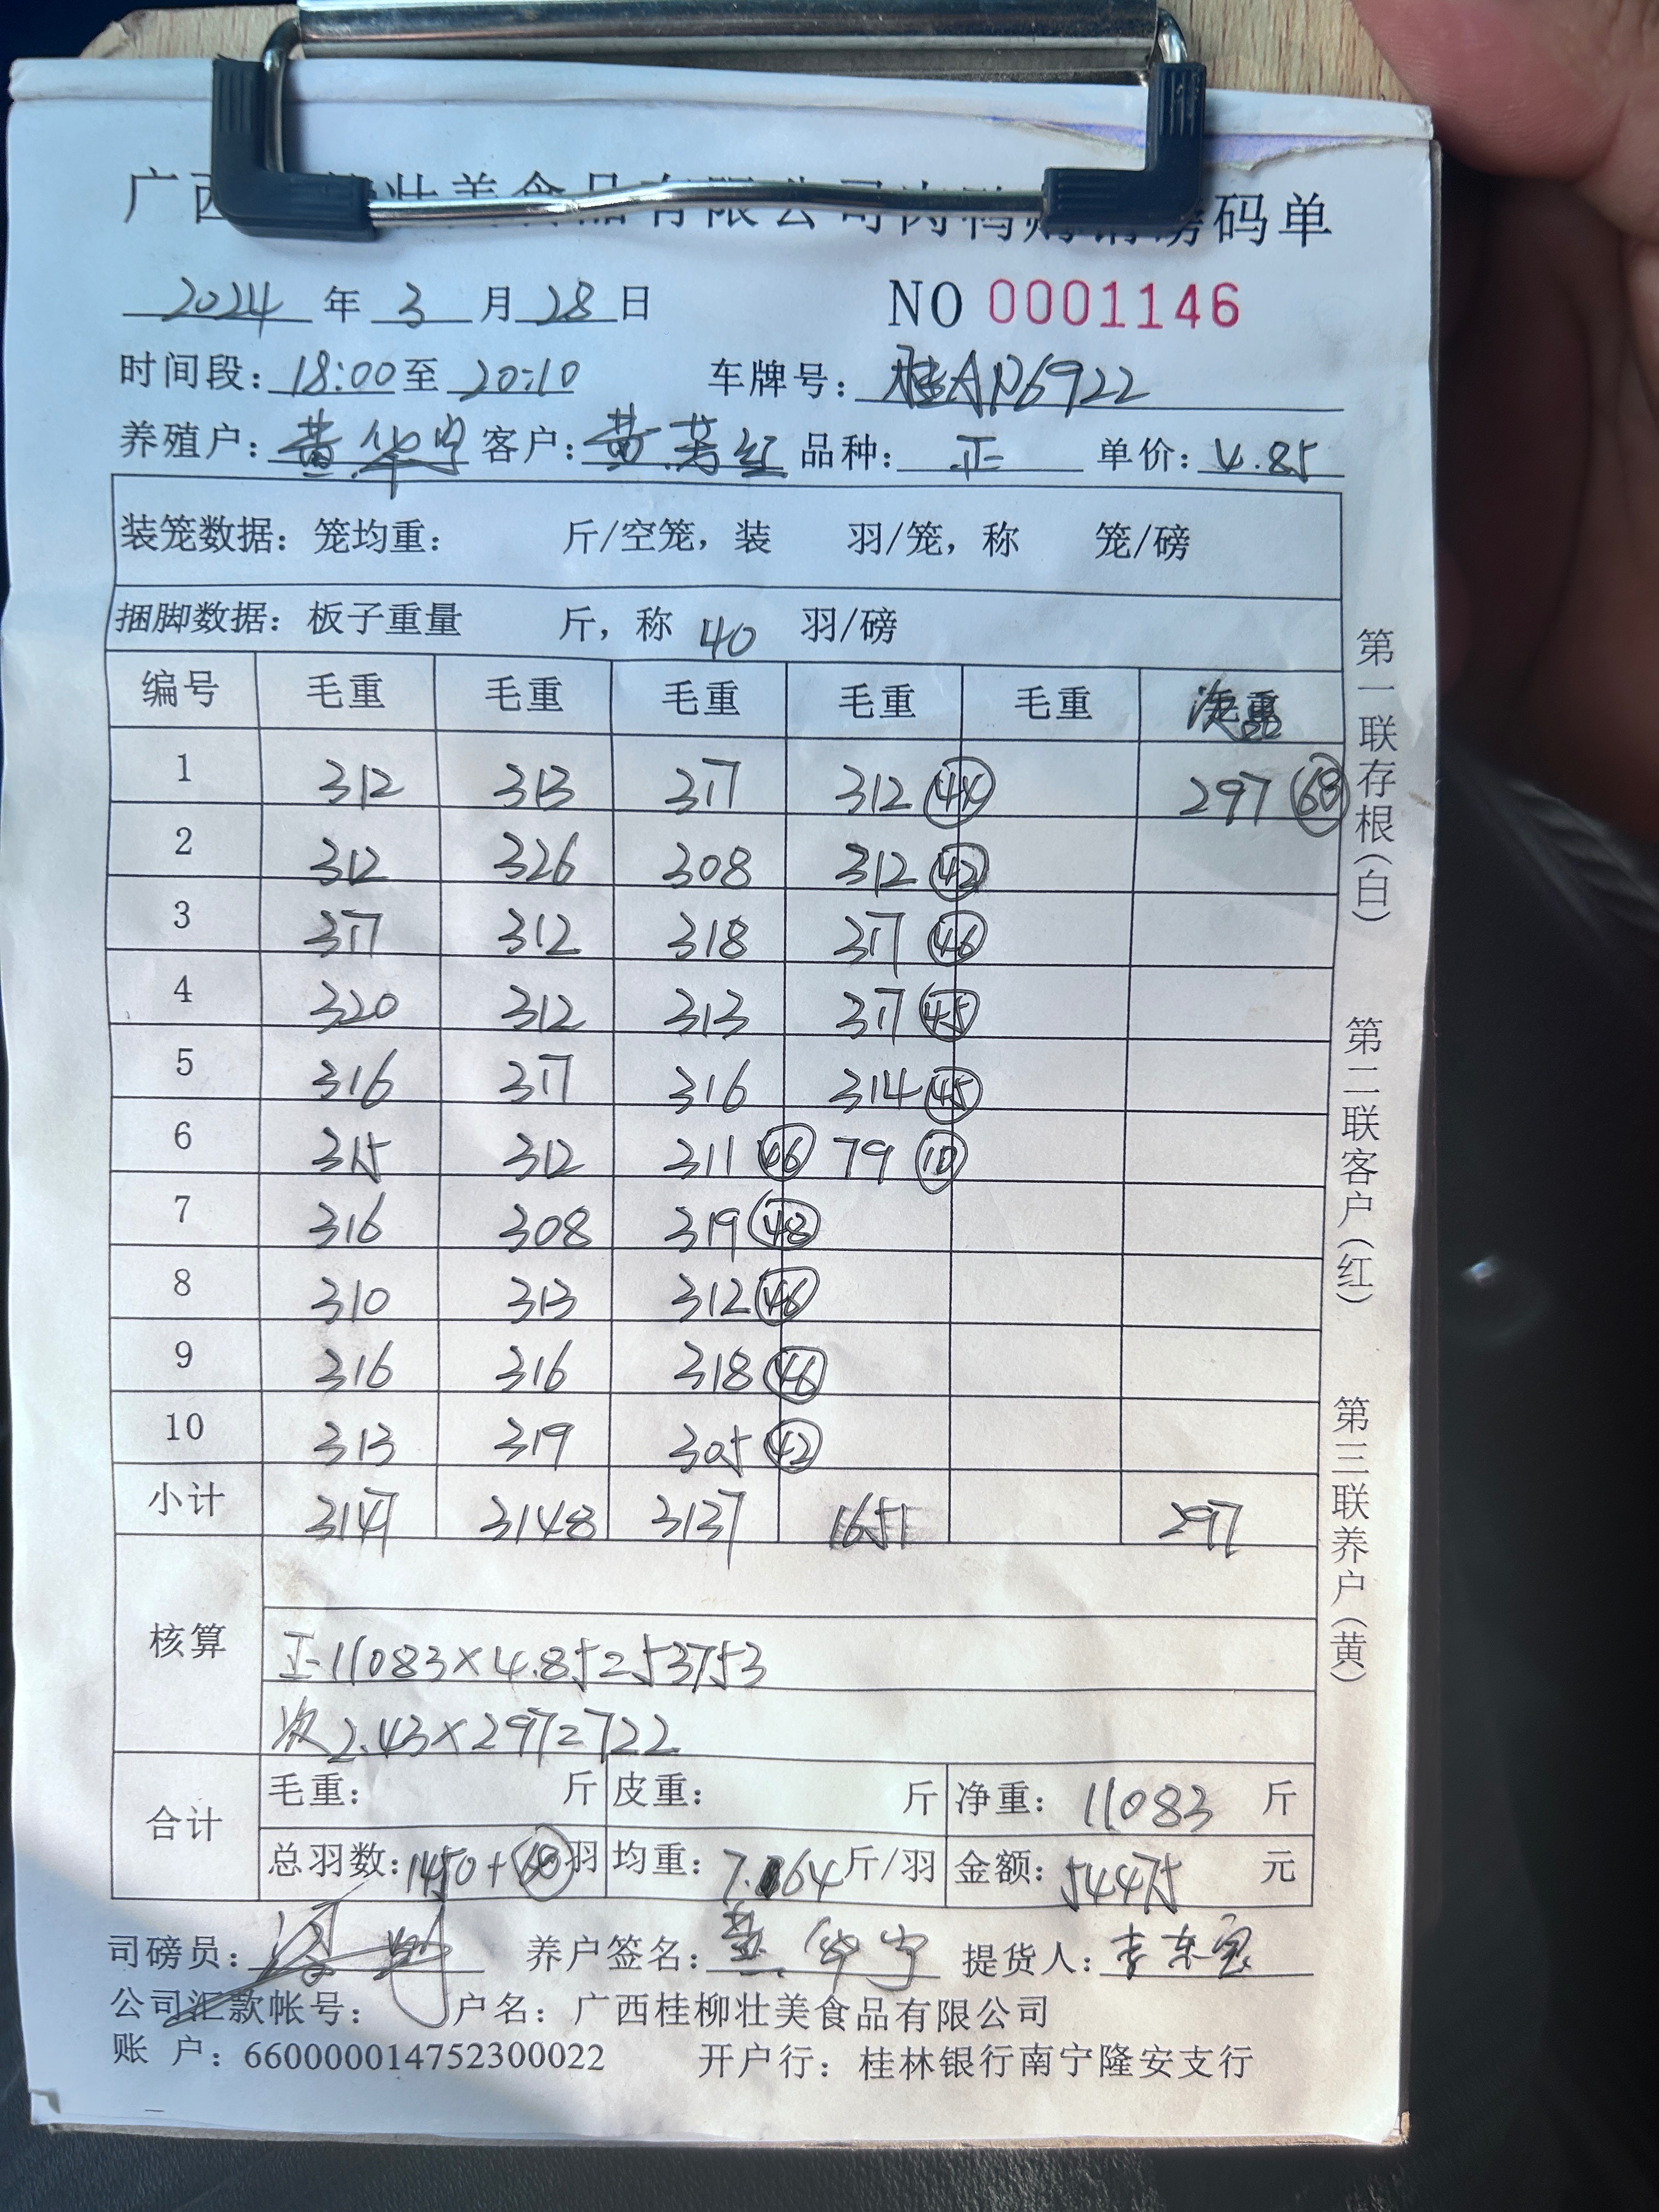 广西 壮美食品有限公司肉鸭购销磅码单
2024 年 3 月 28 日 NO 0001146
时间段: 18:00 至 20:10 车牌号: 桂AN6922
养殖户: 黄华宁 客户: 黄芳红 品种: 正 单价: 4.85
装笼数据: 笼均重: 斤/空笼, 装 羽/笼, 称 笼/磅
捆脚数据: 板子重量 斤, 称 40 羽/磅
编号 毛重 毛重 毛重 毛重 毛重
1 312 313 317 312 44 297 68
2 312 326 308 312 42
3 317 312 318 317 46
4 320 312 313 317 45
5 316 317 316 314 45
6 315 312 311 46 79 10
7 316 308 319 48
8 310 313 312 46
9 316 316 318 46
10 313 319 305 42
小计 3147 3148 3137 1651 297
核算
正11083×4.85=53753
次2.43×297=722
合计
毛重: 斤 皮重: 斤 净重: 11083 斤
总羽数: 1450+68 羽 均重: 7.64 斤/羽 金额: 54475 元
司磅员: 养户签名: 黄华宁 提货人: 李东
公司汇款帐号: 户名: 广西桂柳壮美食品有限公司
账 户: 660000014752300022 开户行: 桂林银行南宁隆安支行
第一联存根(白)
第二联客户(红)
第三联养户(黄)